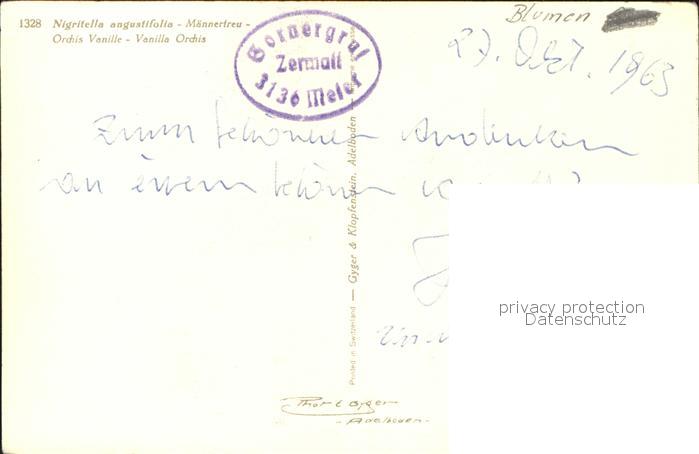 1328 Nigritella angustifolia - Männertreu -
Orchis Vanille - Vanilla Orchis
Blumen
27. Okt. 1963
Gornergrat
Zermatt
3136 Meter
Zum schönen Andenken
an einen schönen
Printed in Switzerland — Gyger & Klopfenstein, Adelboden —
privacy protection
Datenschutz
Phot E Gyger
- Adelboden -